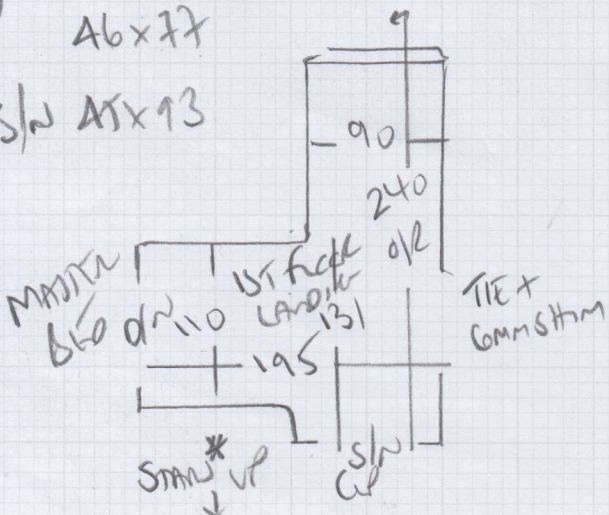 46 x 77
S/N 45 x 93
90
240
O/R
MASTER
BED
O/N
110
1ST FLOOR
LANDING
131
T/E +
6MM SHIM
195
STAIR* UP
S/N
CUP